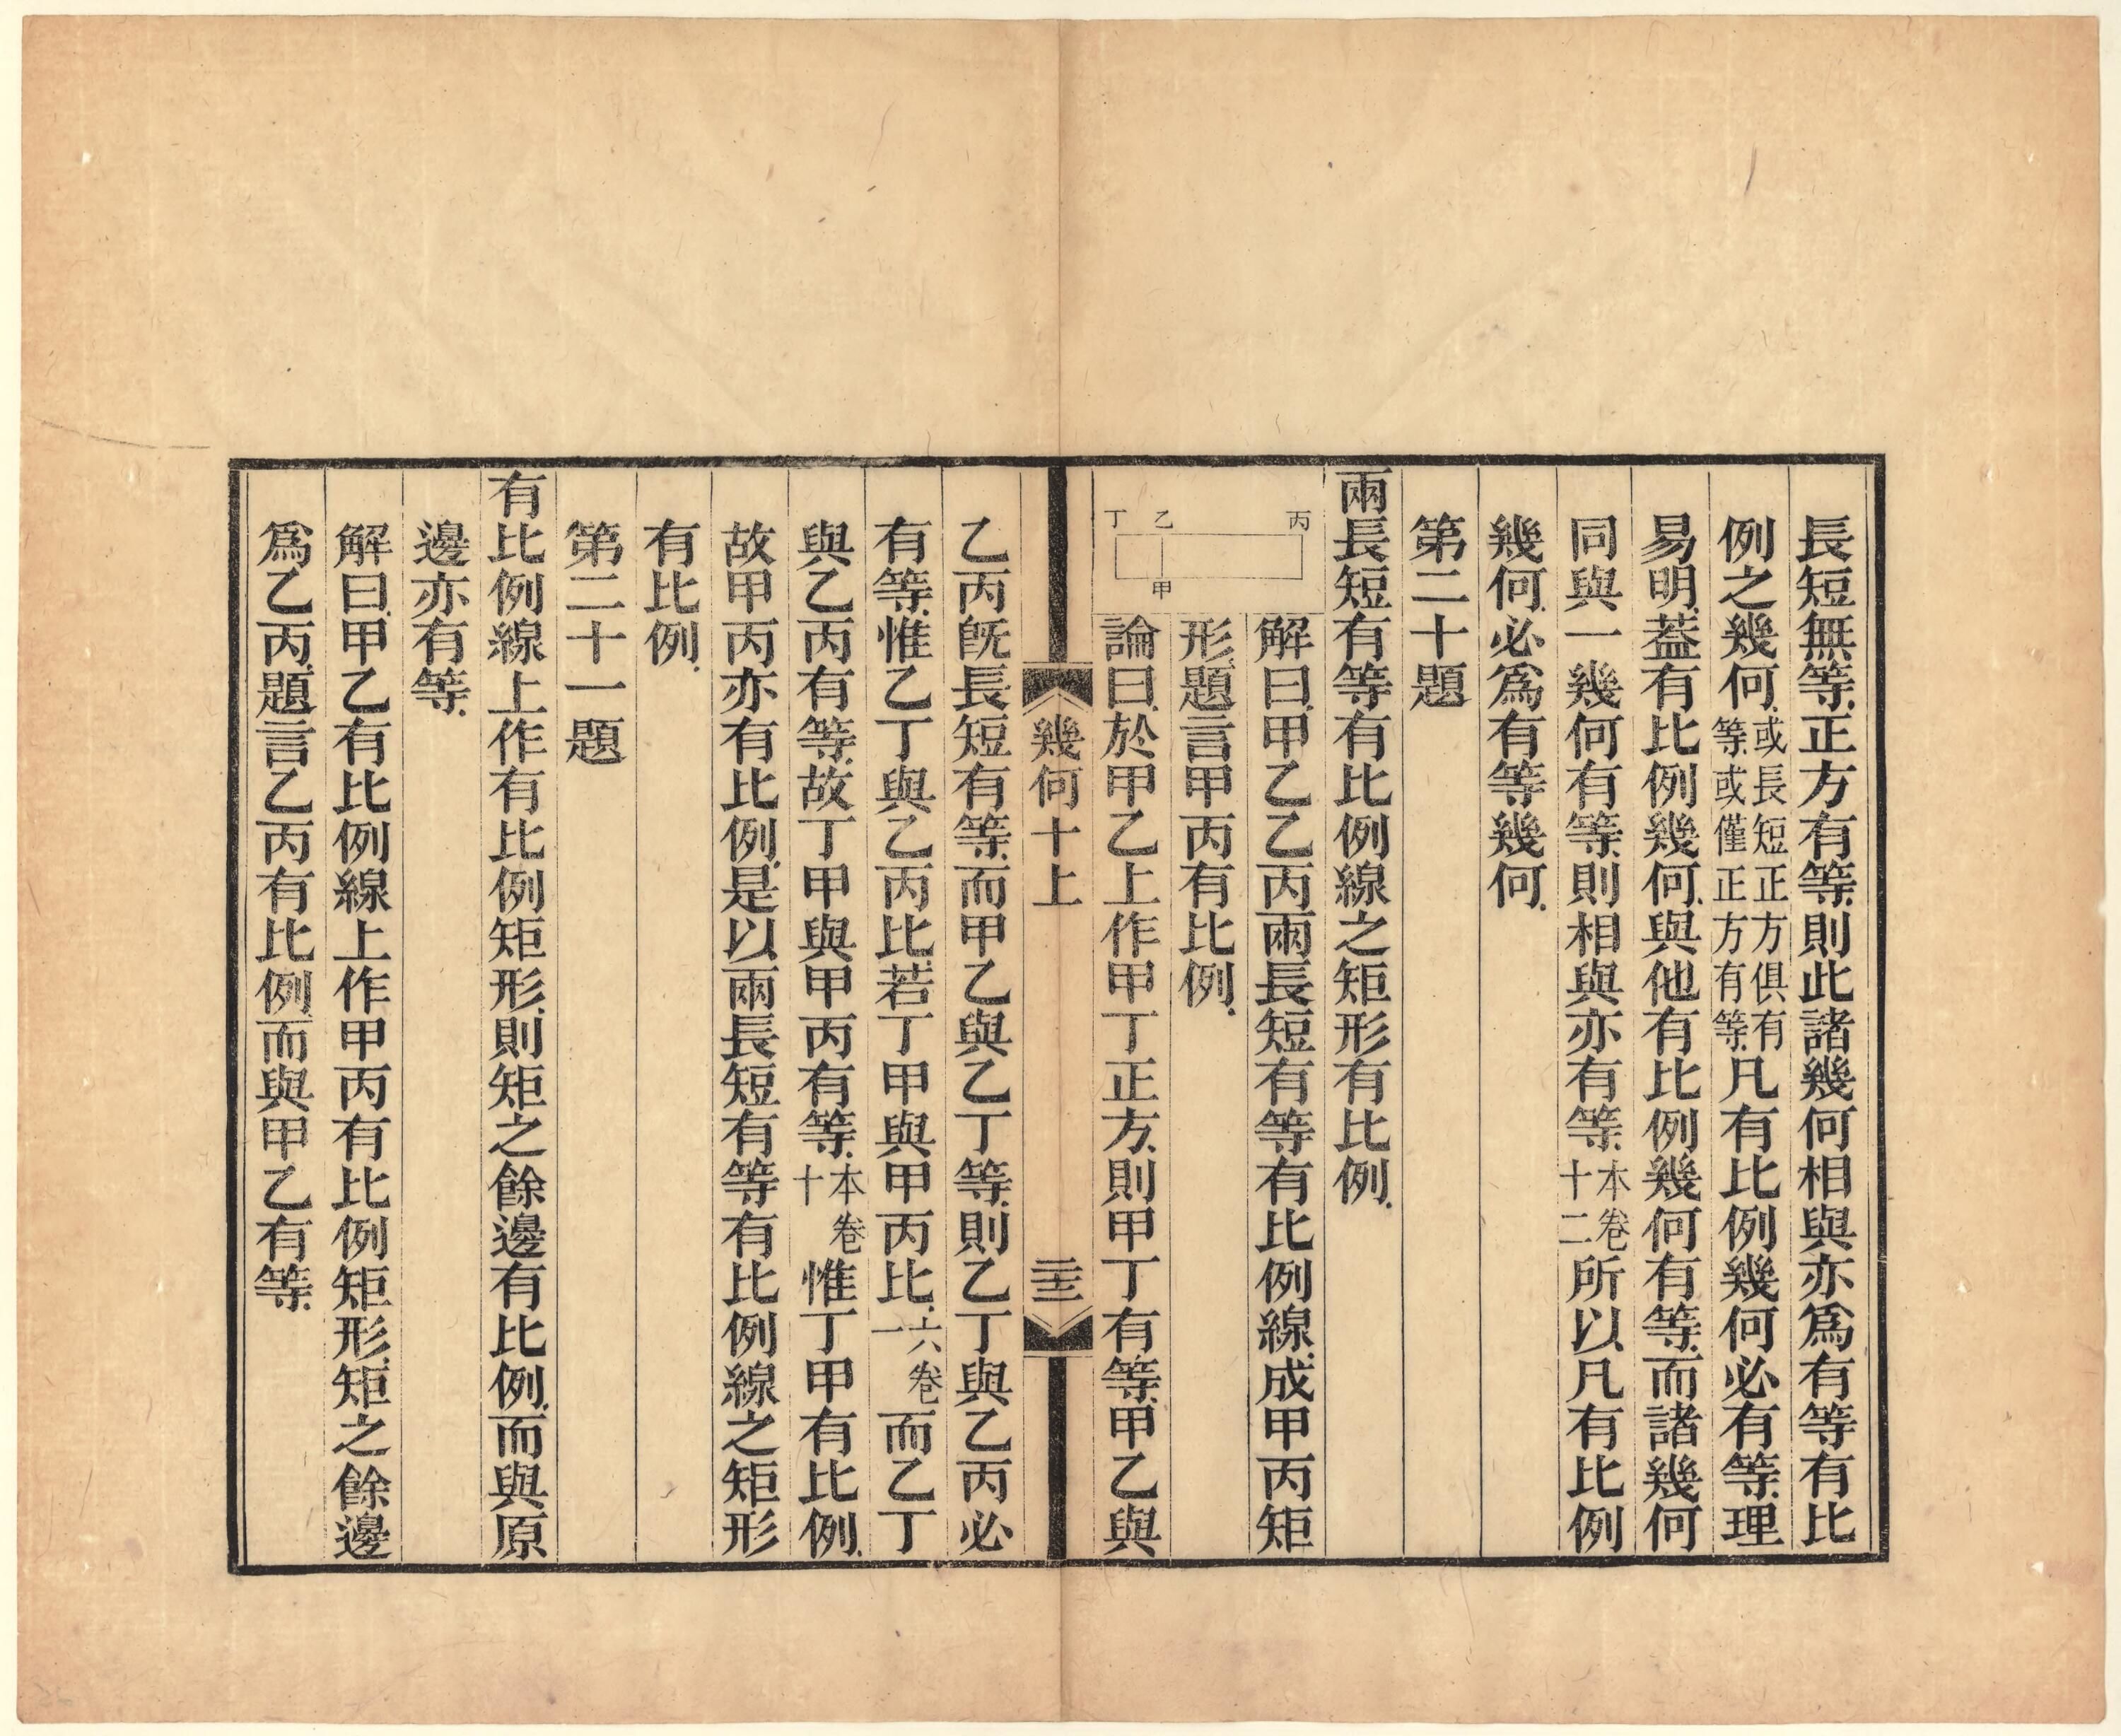 長短無等.正方有等.則此諸幾何相與亦爲有等有比
例之幾何.或長短正方俱有等.或僅正方有等.凡有比例幾何必有等.理
易明.葢有比例幾何.與他有比例幾何有等.而諸幾何
同與一幾何有等.則相與亦有等.本卷十二所以凡有比例
幾何.必爲有等幾何.
第二十題
兩長短有等有比例線之矩形有比例.
丙
乙
丁
甲
解曰.甲乙乙丙兩長短有等有比例線.成甲丙矩
形.題言甲丙有比例.
論曰.於甲乙上作甲丁正方.則甲丁有等.甲乙與
幾何十上
乙丙旣長短有等.而甲乙與乙丁等.則乙丁與乙丙必
有等.惟乙丁與乙丙比若丁甲與甲丙比.六卷一而乙丁
與乙丙有等.故丁甲與甲丙有等.本卷十惟丁甲有比例.
故甲丙亦有比例.是以兩長短有等有比例線之矩形
有比例.
第二十一題
有比例線上作有比例矩形.則矩之餘邊有比例.而與原
邊亦有等.
解曰.甲乙有比例線上作甲丙有比例矩形.矩之餘邊
爲乙丙.題言乙丙有比例.而與甲乙有等.